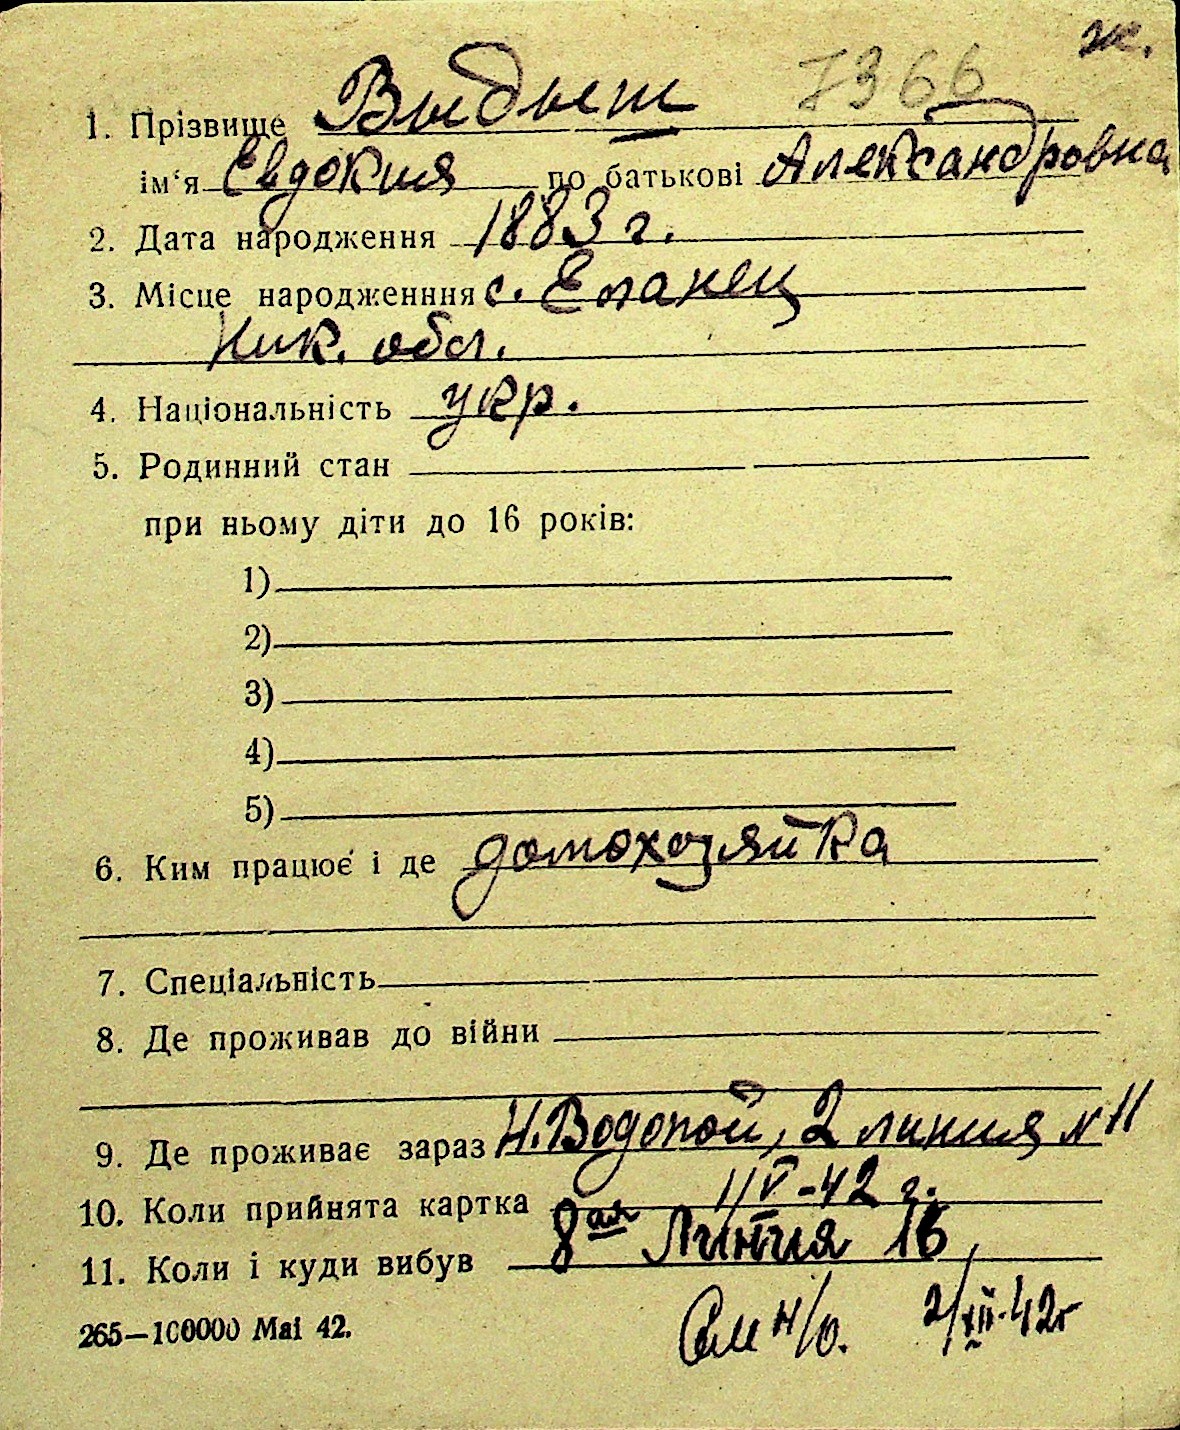 ж.
7366
1. Прізвище Выдыш
ім'я Евдокия по батькові Александровна
2. Дата народження 1883 г.
3. Місце народженння с. Еланец
Ник. обл.
4. Національність укр.
5. Родинний стан
при ньому діти до 16 років:
1)
2)
3)
4)
5)
6. Ким працює і де домохозяйка
7. Спеціальність
8. Де проживав до війни
9. Де проживає зараз Н. Водопой, 2 линия N 11
10. Коли прийнята картка 1/V-42 г.
11. Коли і куди вибув 8ая Линия 16
265—100000 Маі 42. См н/о. 2/XII-42г